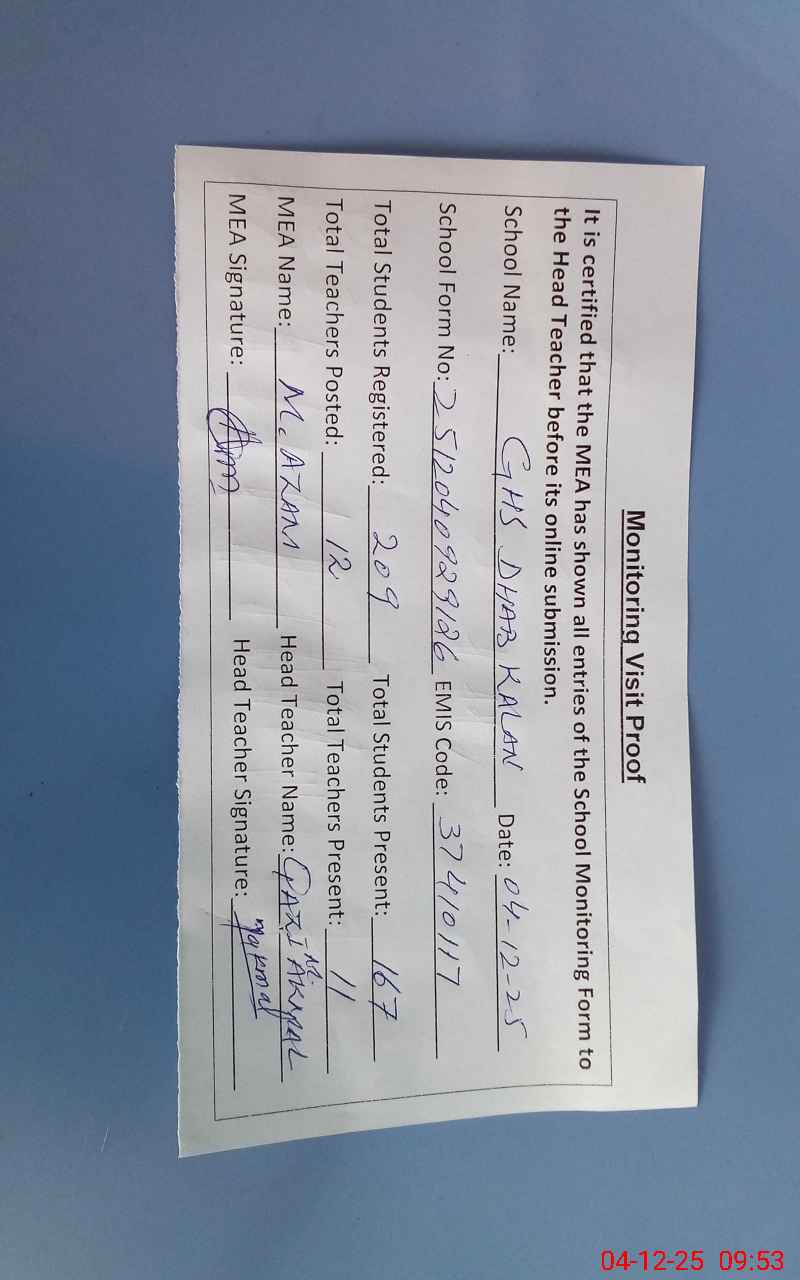 Monitoring Visit Proof
It is certified that the MEA has shown all entries of the School Monitoring Form to
the Head Teacher before its online submission.
School Name: GHS DHAB KALAN Date: 04-12-25
School Form No: 2512040929126 EMIS Code: 37410117
Total Students Registered: 209 Total Students Present: 167
Total Teachers Posted: 12 Total Teachers Present: 11
MEA Name: M. AZAM Head Teacher Name: QAZI M. AKMAL
MEA Signature: Head Teacher Signature: Makmal
04-12-25 09:53